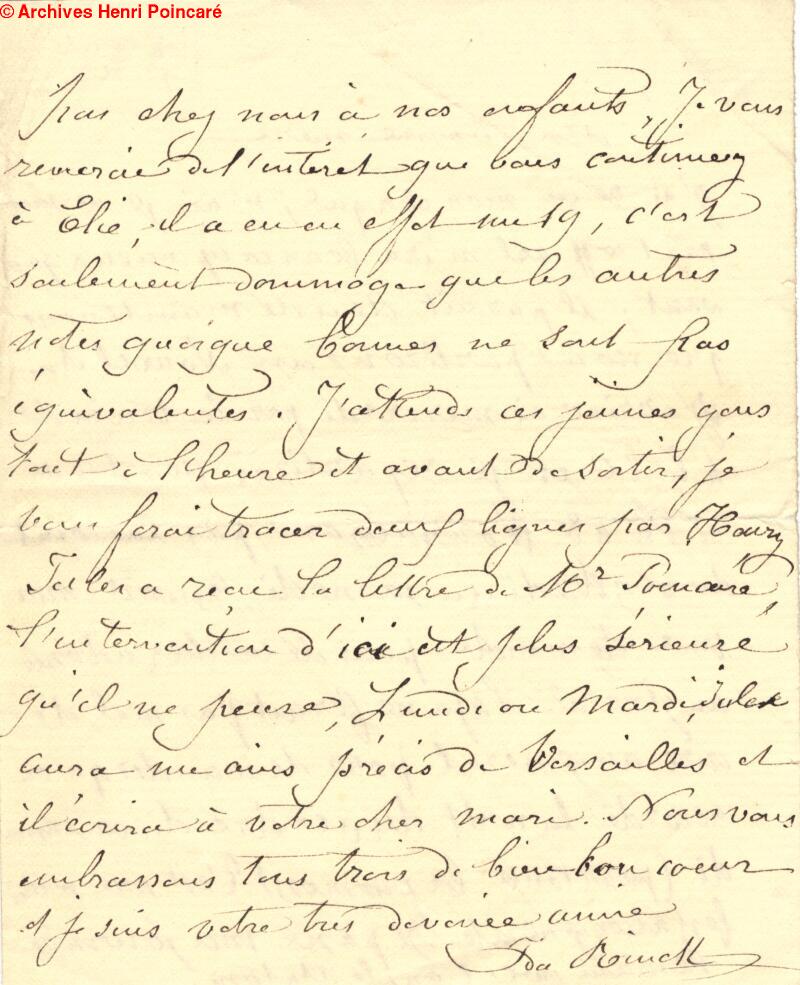 © Archives Henri Poincaré
pas chez nous à nos enfants, Je vous
remercie de l'intérêt que vous continuez
à Elie, il a eu en effet un 19, c'est
seulement dommage que les autres
notes quoique bonnes ne sont pas
équivalentes. J'attends ces jeunes gens
tout à l'heure et avant de sortir, je
vous ferai tracer deux lignes par Henry
Jules a reçu la lettre de Mr Poincaré,
l'intervention d'ici est plus sérieuse
qu'il ne pense, Lundi ou Mardi Jules
aura un avis précis de Versailles et
il écrira à votre cher mari. Nous vous
embrassons tous trois de bien bon coeur
et je suis votre très dévouée amie
Ida Rinck